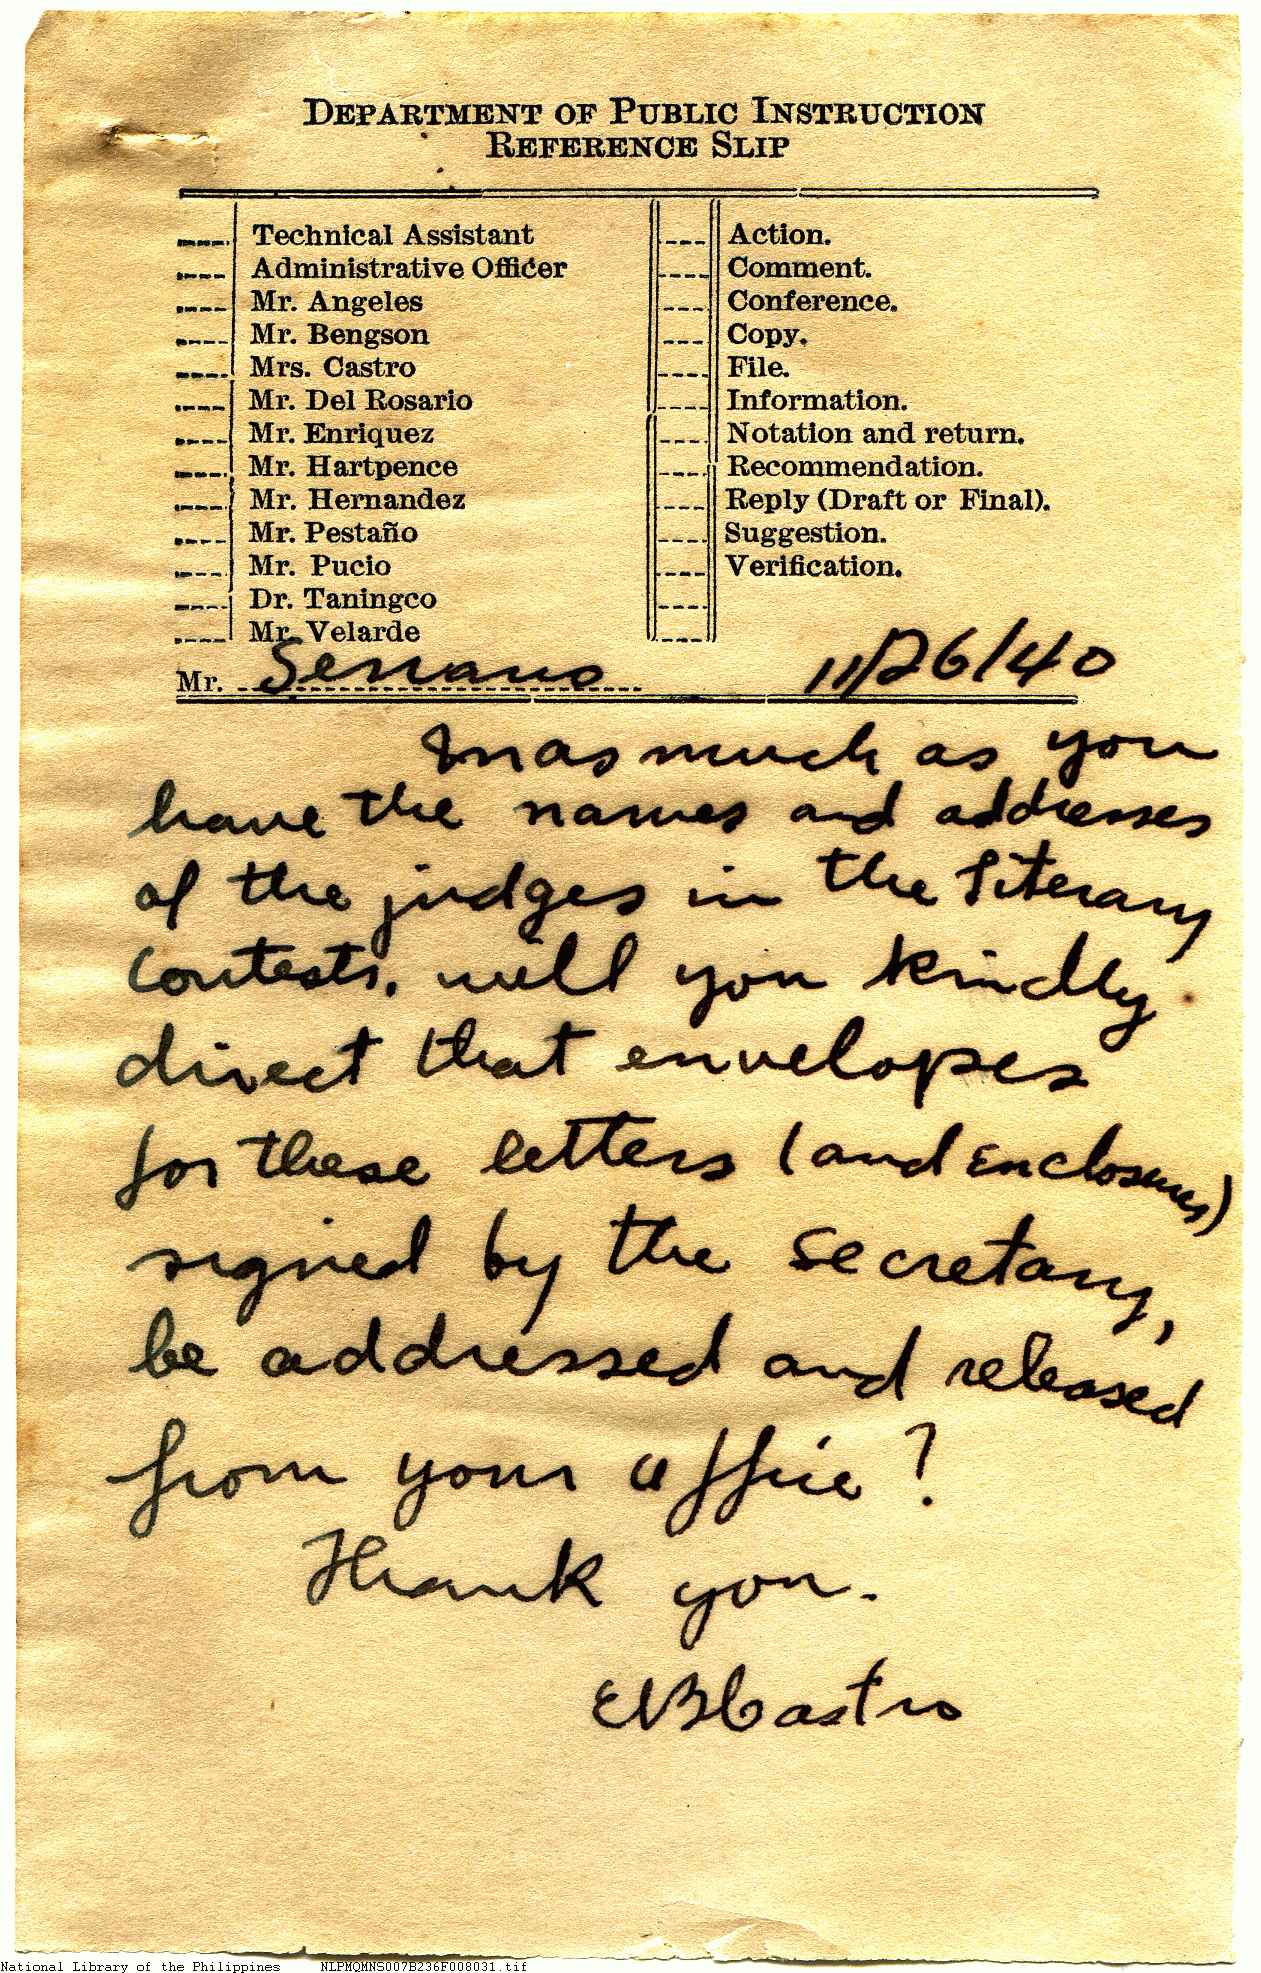 DEPARTMENT OF PUBLIC INSTRUCTION
REFERENCE SLIP
Technical Assistant
Administrative Officer
Mr. Angeles
Mr. Bengson
Mrs. Castro
Mr. Del Rosario
Mr. Enriquez
Mr. Hartpence
Mr. Hernandez
Mr. Pestaño
Mr. Pucio
Dr. Taningco
Mr. Velarde
Action.
Comment.
Conference.
Copy.
File.
Information.
Notation and return.
Recommendation.
Reply (Draft or Final).
Suggestion.
Verification.
Mr. Serrano 11/26/40
Inasmuch as you
have the names and addresses
of the judges in the literary
contests, will you kindly
direct that envelopes
for these letters (and enclosures)
signed by the Secretary,
be addressed and released
from your office?
Thank you.
EVBCastro
National Library of the Philippines NLPMQMNS007B236F008031.tif